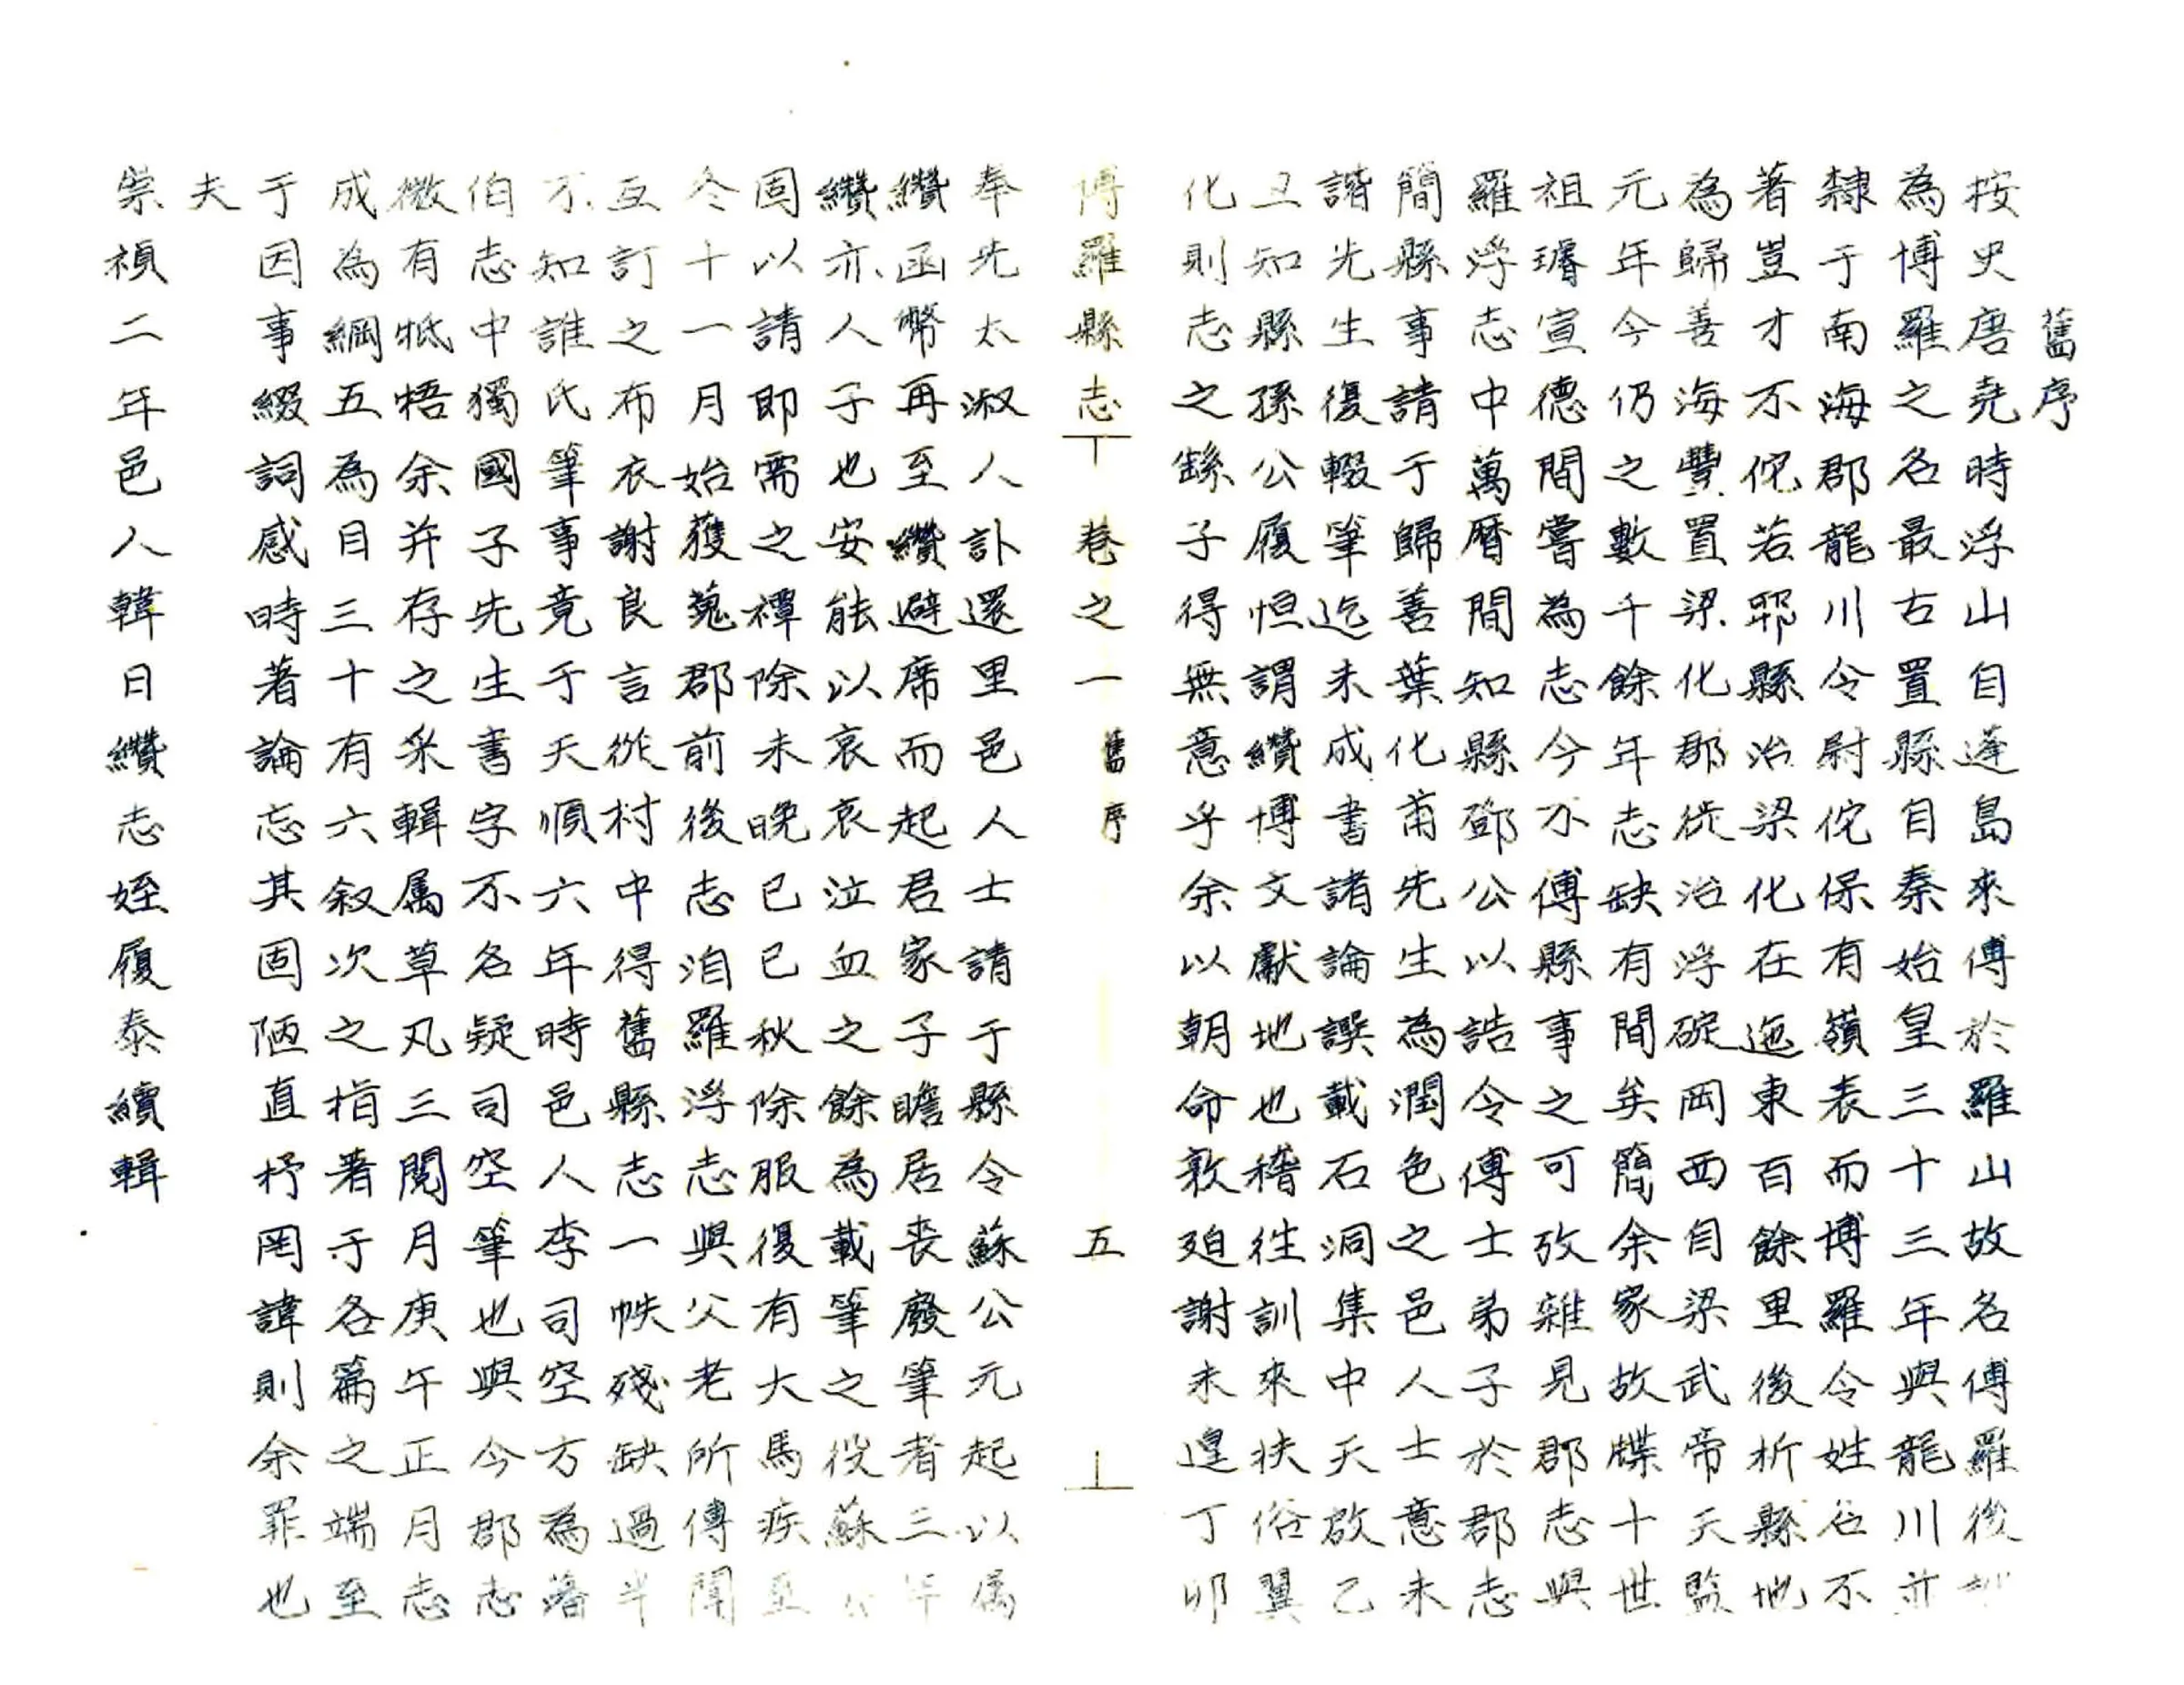 舊序
按史唐堯時浮山自蓬島來傅於羅山故名傅羅後
為博羅之名最古置縣自秦始皇三十三年與龍川並
隸于南海郡龍川令尉佗保有嶺表而博羅令姓名不
著豈才不佗若耶縣治梁化在迤東百餘里後析縣地
為歸善海豐置梁化郡徙治浮碇岡西自梁武帝天監
元年今仍之數千餘年志缺有間矣簡余家故牒十世
祖璿宣德間嘗為志今不傅縣事之可攷雜見郡志與
羅浮志中萬曆間知縣鄧公以誥令傅士弟子於郡志
簡縣事請于歸善葉化甫先生為潤色之邑人士意未
諧先生復輟筆迄未成書諸論譔載石洞集中天啟乙
丑知縣孫公履恒謂纘博文獻地也稽往訓來扶俗翼
化則志之繇子得無意乎余以朝命敦廹謝未遑丁卯
博羅縣志 卷之一 舊序 五
奉先太淑人訃還里邑人士請于縣令蘇公元起以属
纘函幣再至纘避席而起君家子瞻居喪廢筆者三年
纘亦人子也安能以哀哀泣血之餘為載筆之役蘇公
固以請即需之禫除未晚已已秋除服復有犬馬疾至
冬十一月始獲蒐郡前後志洎羅浮志與父老所傅聞
互訂之布衣謝良言從村中得舊縣志一帙殘缺過半
不知誰氏筆事竟于天順六年時邑人李司空方為藩
伯志中獨國子先生書字不名疑司空筆也與今郡志
微有牴牾余并存之采輯属草凡三閱月庚午正月志
成為綱五為目三十有六叙次之指著于各篇之端至
于因事綴詞感時著論忘其固陋直抒罔諱則余罪也
夫
崇禎二年邑人韓日纘志姪履泰續輯